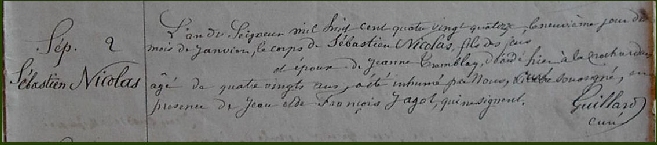 Sép. 2
Sébastien Nicolas
L'an du Seigneur mil huit cent quatre vingt quatorze, le neuvième jour du
mois de Janvier, le corps de Sébastien Nicolas, fils des feus
et époux de Jeanne Tremblay, décédé hier à la
âgé de quatre vingts ans, a été inhumé par Nous, soussigné, en
présence de Jean et de François Jagot, qui ne signent.
Guillard
curé